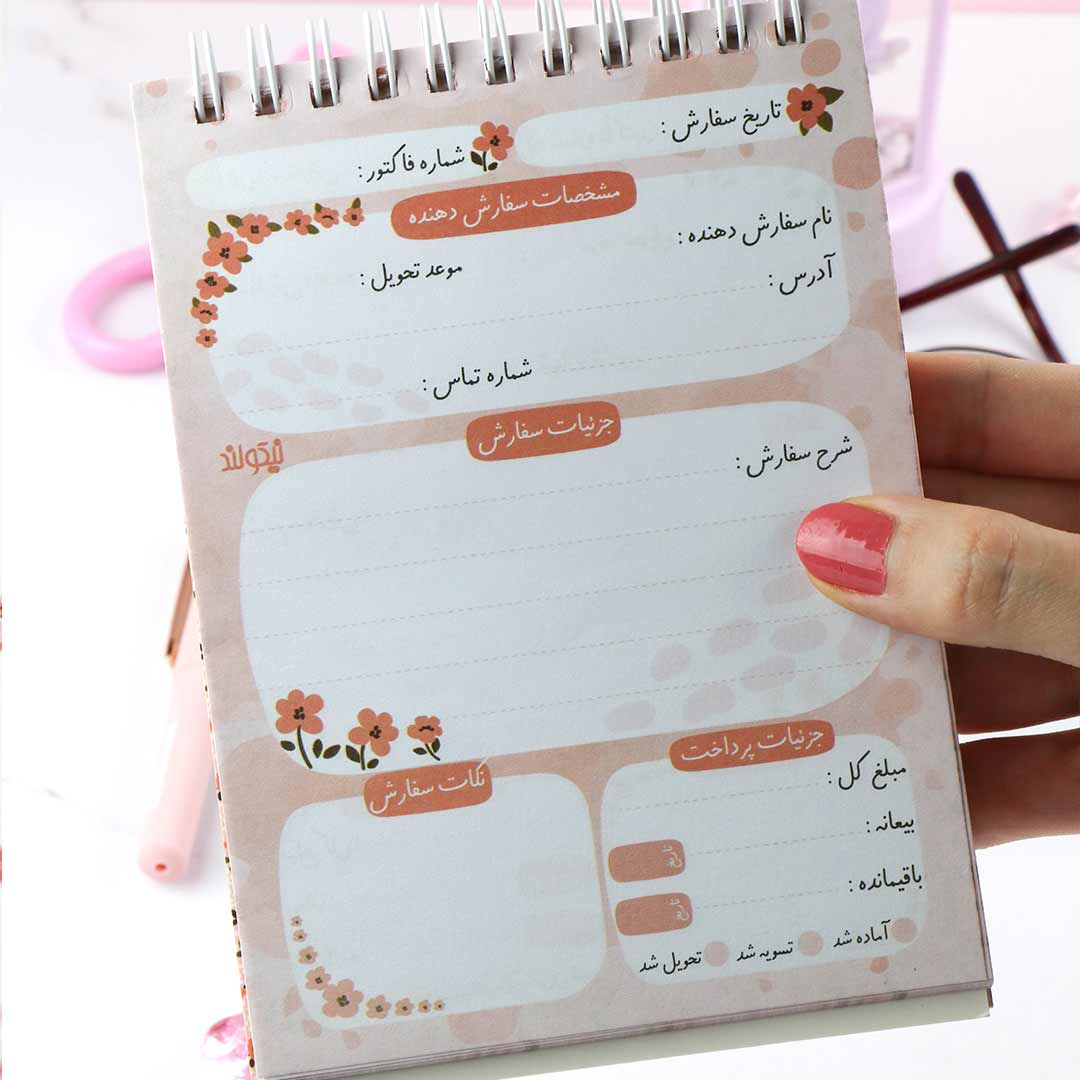 تاریخ سفارش :
شماره فاکتور :
مشخصات سفارش دهنده
نام سفارش دهنده :
موعد تحویل :
آدرس :
شماره تماس :
جزئیات سفارش
نیکولند
شرح سفارش :
جزئیات پرداخت
نکات سفارش
مبلغ کل :
بیعانه :
تاریخ
باقیمانده :
تاریخ
آماده شد
تسویه شد
تحویل شد